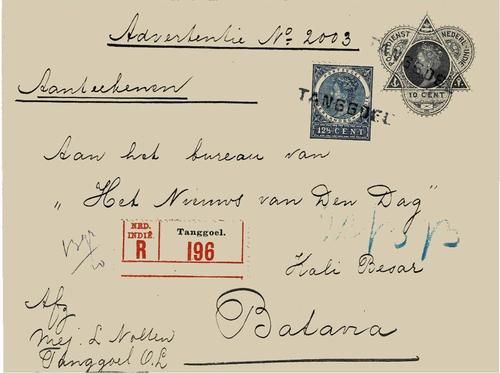 Advertentie No. 2003
POSTDIENST NEDERL-INDIË
10 CENT
TANGGOEL
Aanteekenen
TANGGOEL
12½ CENT
Aan het bureau van
„Het Nieuws van Den Dag"
NED.
INDIË
R
Tanggoel.
196
Kali Besar
Batavia
Afz
Mej. L Nolten
Tanggoel O.L